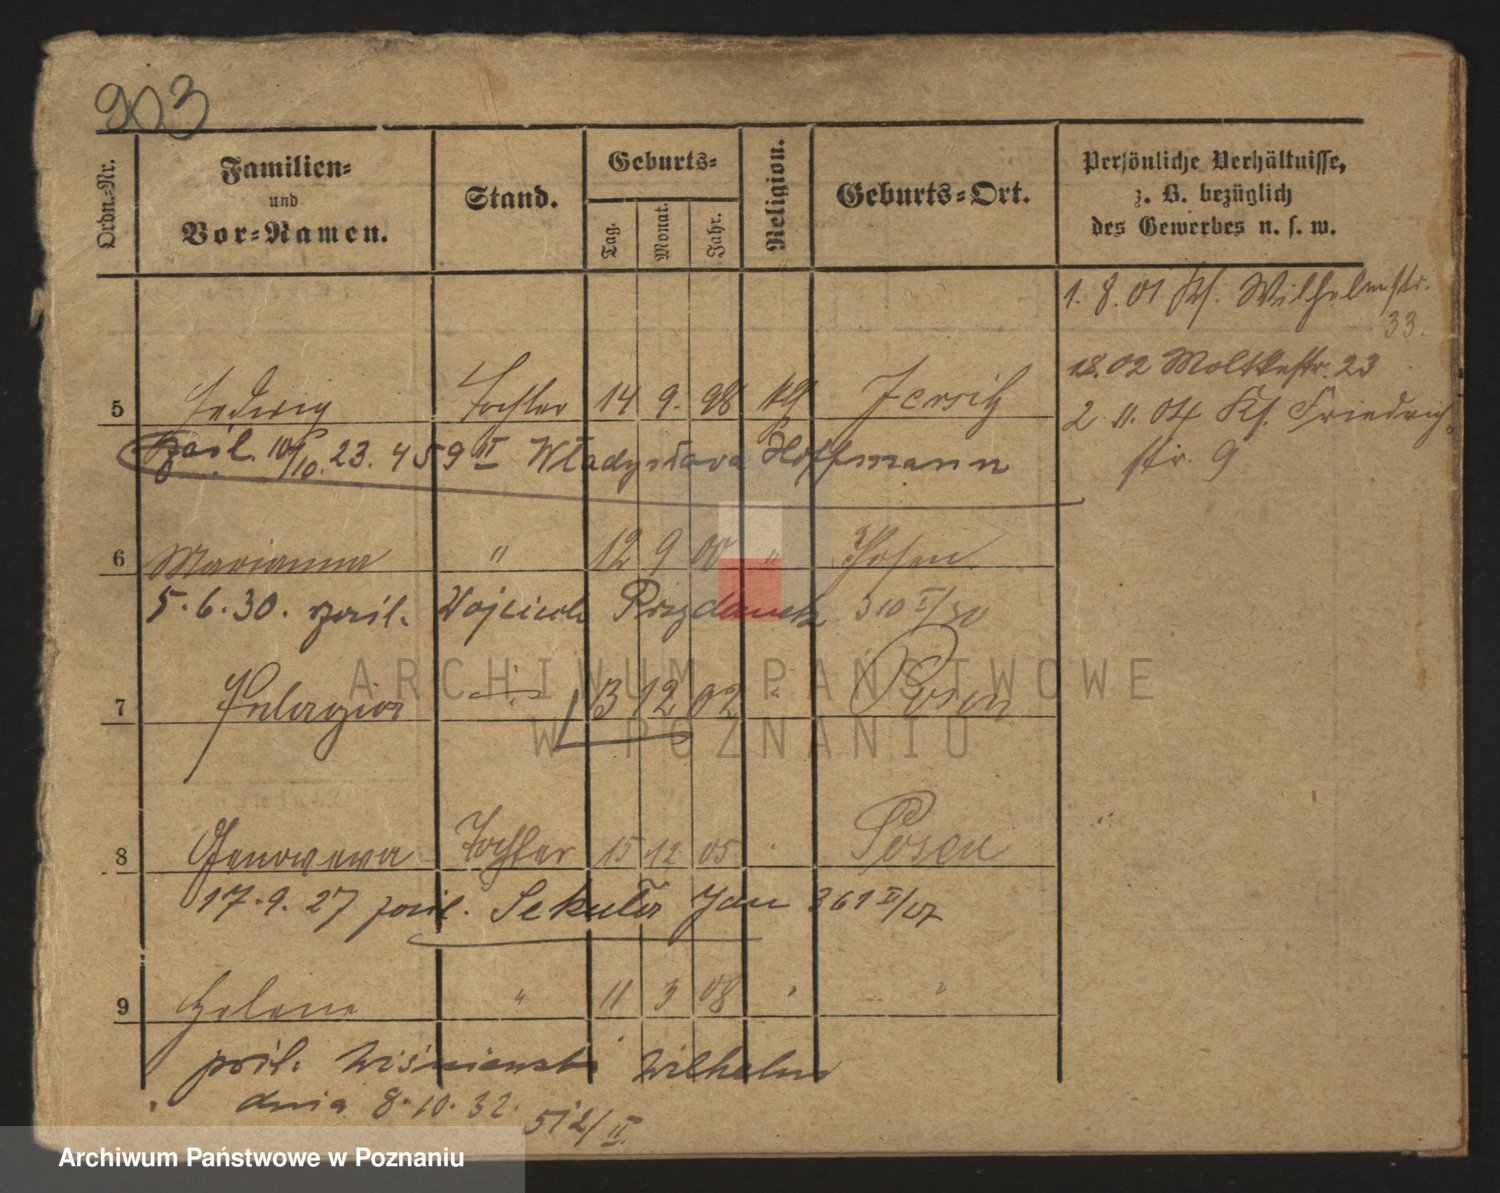 903
Ordn.-Nr.
Familien-
und
Vor-Namen.
Stand.
Geburts-
Tag.
Monat.
Jahr.
Religion.
Geburts-Ort.
Persönliche Verhältnisse,
z. B. bezüglich
des Gewerbes u. s. w.
1. 8. 01 Wilhelmstr.
33.
02 Moltkestr. 23
2. 11. 04 Friedrich-
str. 9
5 Hedwig Tochter 14 9. 98 Jersitz
10/10. 23. 459 II Władysława Hoffmann
6 Marianna " 12 9 00 " Posen
5.6.30. Wojciech 310 I/30
7 Pelagia 13 12 02 " Posen
8 Genowewa Tochter 15 12 05 " Posen
17.9.27 Sekuła Jan 361 II/27
9 Helene " 11 3 08 " "
Wiśniewski Wilhelm
dnia 8.10.32. 512/II.
ARCHIWUM PAŃSTWOWE
W POZNANIU
Archiwum Państwowe w Poznaniu